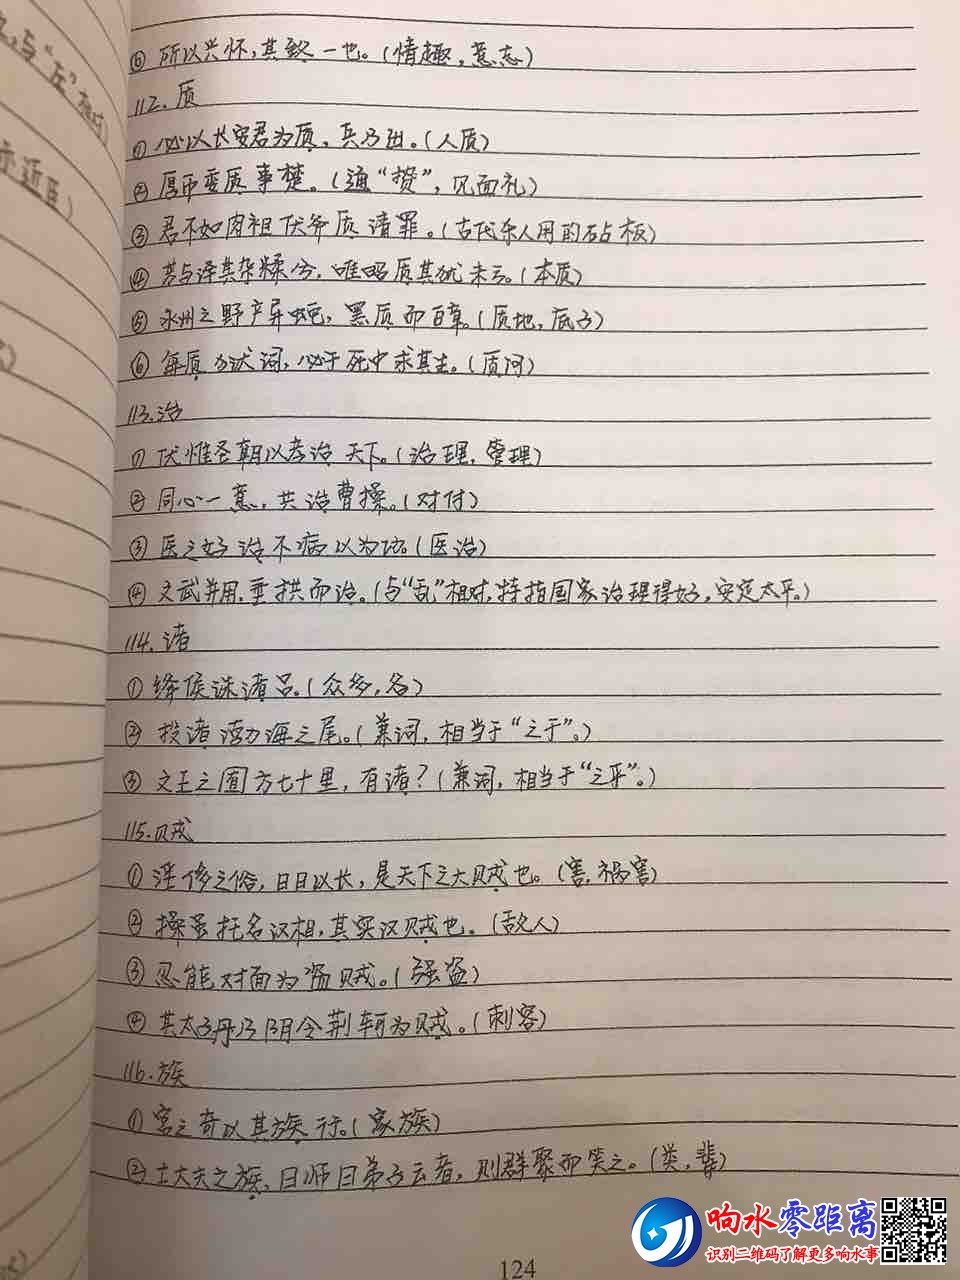 与“左”相对)
示近臣)
⑥ 所以兴怀,其致一也。(情趣,意态)
112. 质
① 必以长安君为质,兵乃出。(人质)
② 厚币委质事楚。(通“贽”,见面礼)
③ 君不如肉袒伏斧质请罪。(古代杀人用的砧板)
④ 芳与泽其杂糅兮,唯昭质其犹未亏。(本质)
⑤ 永州之野产异蛇,黑质而白章。(质地,底子)
⑥ 每质 词,必于死中求其生。(质问)
113.治
① 伏惟圣朝以孝治天下。(治理,管理)
② 同心一意,共治曹操。(对付)
③ 医之好治不病以为功。(医治)
④ 文武并用,垂拱而治。(与“乱”相对,特指国家治理得好,安定太平。)
114. 诸
① 绛侯诛诸吕。(众多,各)
② 投诸渤海之尾。(兼词,相当于“之于”。)
③ 文王之囿方七十里,有诸?(兼词,相当于“之乎”。)
115.贼
① 淫侈之俗,日日以长,是天下之大贼也。(害,祸害)
② 操虽托名汉相,其实汉贼也。(敌人)
③ 忍能对面为盗贼。(强盗)
④ 其太子丹乃阴令荆轲为贼。(刺客)
116.族
① 宫之奇以其族行。(家族)
② 士大夫之族,曰师曰弟子云者,则群聚而笑之。(类,辈)
124
响水零距离
识别二维码了解更多响水事